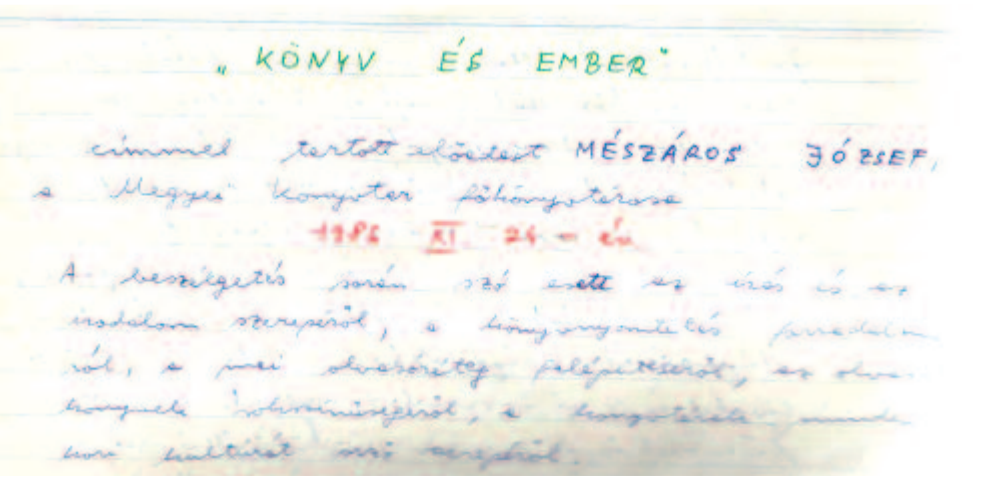 „KÖNYV ÉS EMBER"
címmel tartott előadást MÉSZÁROS JÓZSEF,
a Megyei Könyvtár főkönyvtárosa
XI 24 - én
A beszélgetés során szó esett az írás és az
irodalom szerepéről, a könyvnyomtatás forradalm
ról, a mai olvasóréteg felépítéséről, az olva
könyvek sokszínűségéről, a könyvtárak
kori kultúrát szerepéről.